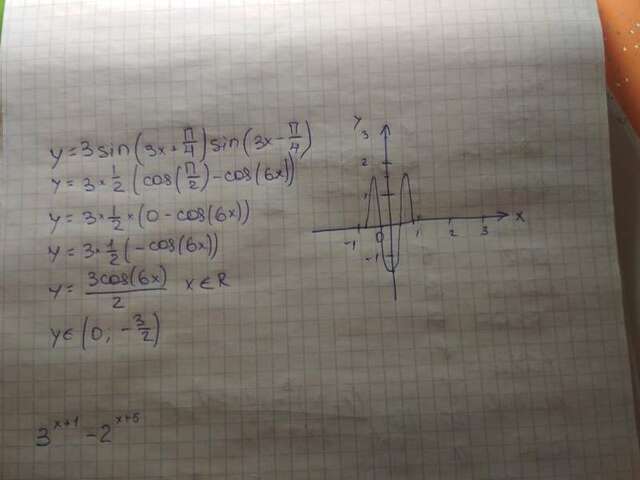 y = 3 sin(3x + π/4) sin(3x - π/4)
y = 3 * 1/2 (cos(π/2) - cos(6x))
y = 3 * 1/2 * (0 - cos(6x))
y = 3 * 1/2 (-cos(6x))
y = 3cos(6x)/2 x ∈ R
y ∈ (0; -3/2)
3^(x+1) - 2^(x+5)
y
3
2
1
-1 0 1 2 3 x
-1